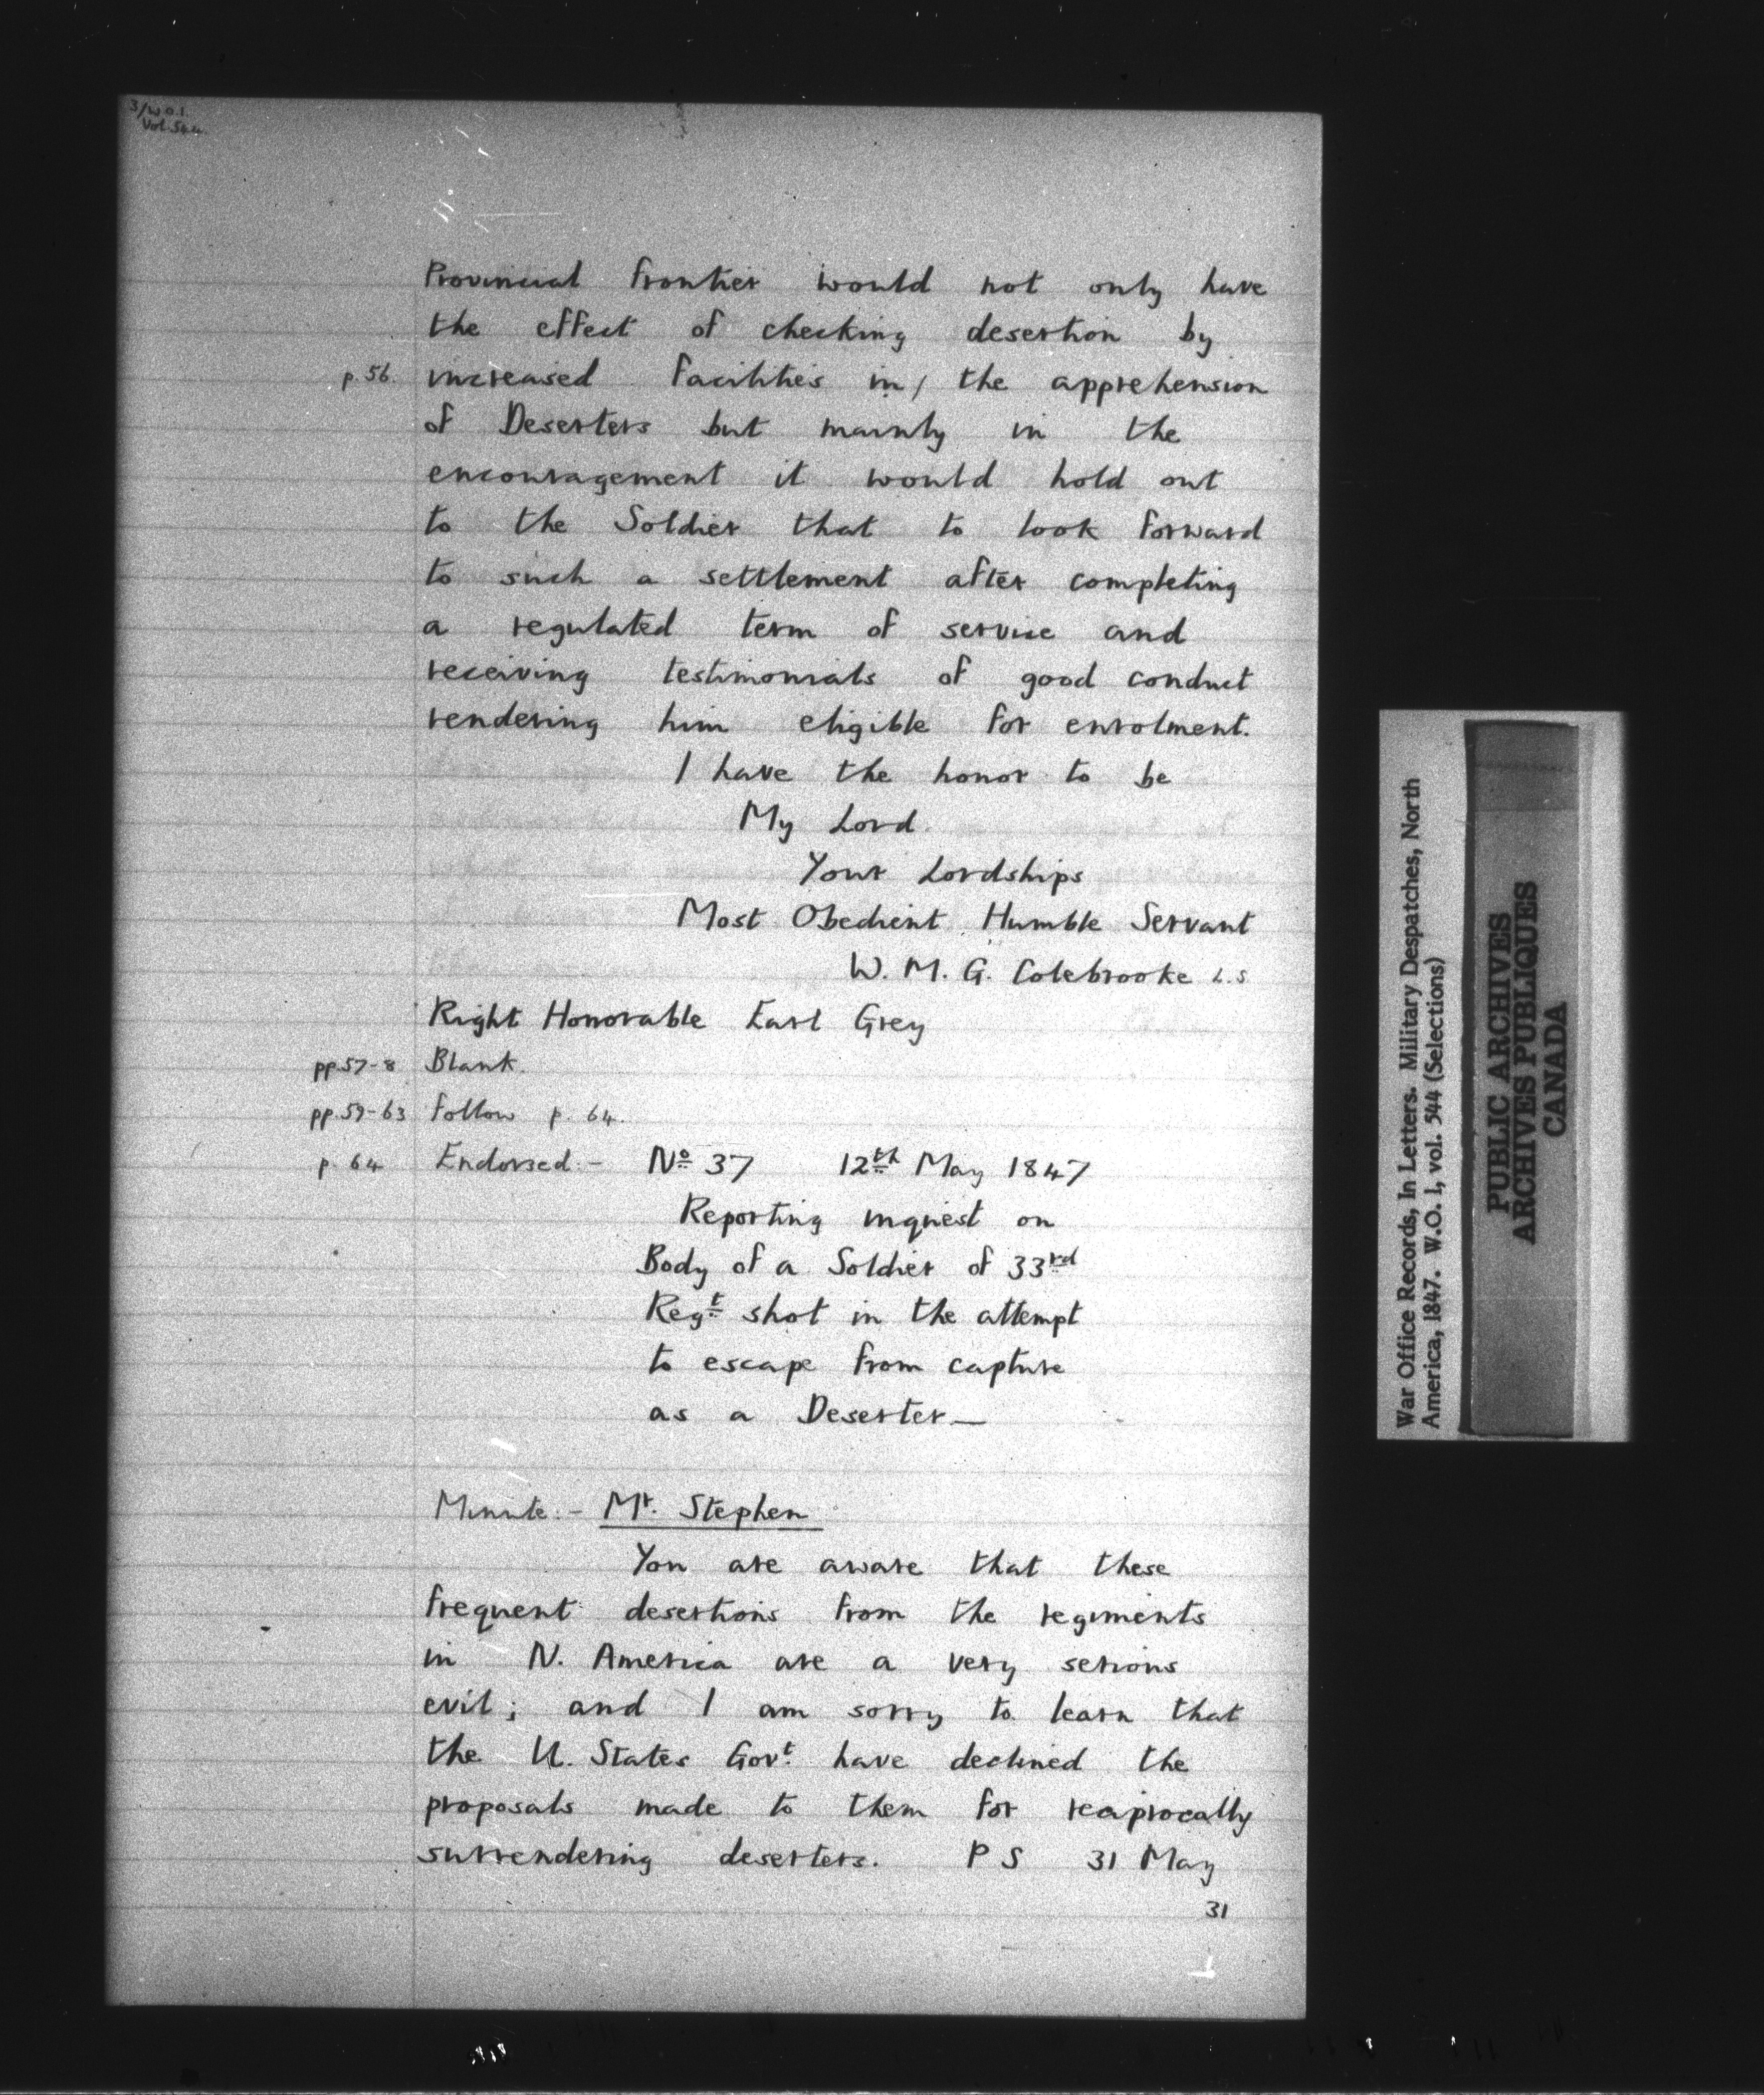 3/W.O.1.
Vol. 544
Provincial frontier would not only have
the effect of checking desertion by
p. 56. increased facilities in / the apprehension
of Deserters but mainly in the
encouragement it would hold out
to the Soldier that to look forward
to such a settlement after completing
a regulated term of service and
receiving testimonials of good conduct
rendering him eligible for enrolment.
I have the honor to be
My Lord.
Your Lordships
Most Obedient Humble Servant
W. M. G. Colebrooke L.S.
Right Honorable Earl Grey
pp. 57-8 Blank.
pp. 59-63 follow p. 64.
p. 64 Endorsed:- No 37 12th May 1847
Reporting inquest on
Body of a Soldier of 33rd
Regt shot in the attempt
to escape from capture
as a Deserter—
Minute:- Mr. Stephen
You are aware that these
frequent desertions from the regiments
in N. America are a very serious
evil; and I am sorry to learn that
the U. States Govt. have declined the
proposals made to them for reciprocally
surrendering deserters. P S 31 May
31
War Office Records, In Letters. Military Despatches, North
America, 1847. W.O. 1, vol. 544 (Selections)
PUBLIC ARCHIVES
ARCHIVES PUBLIQUES
CANADA